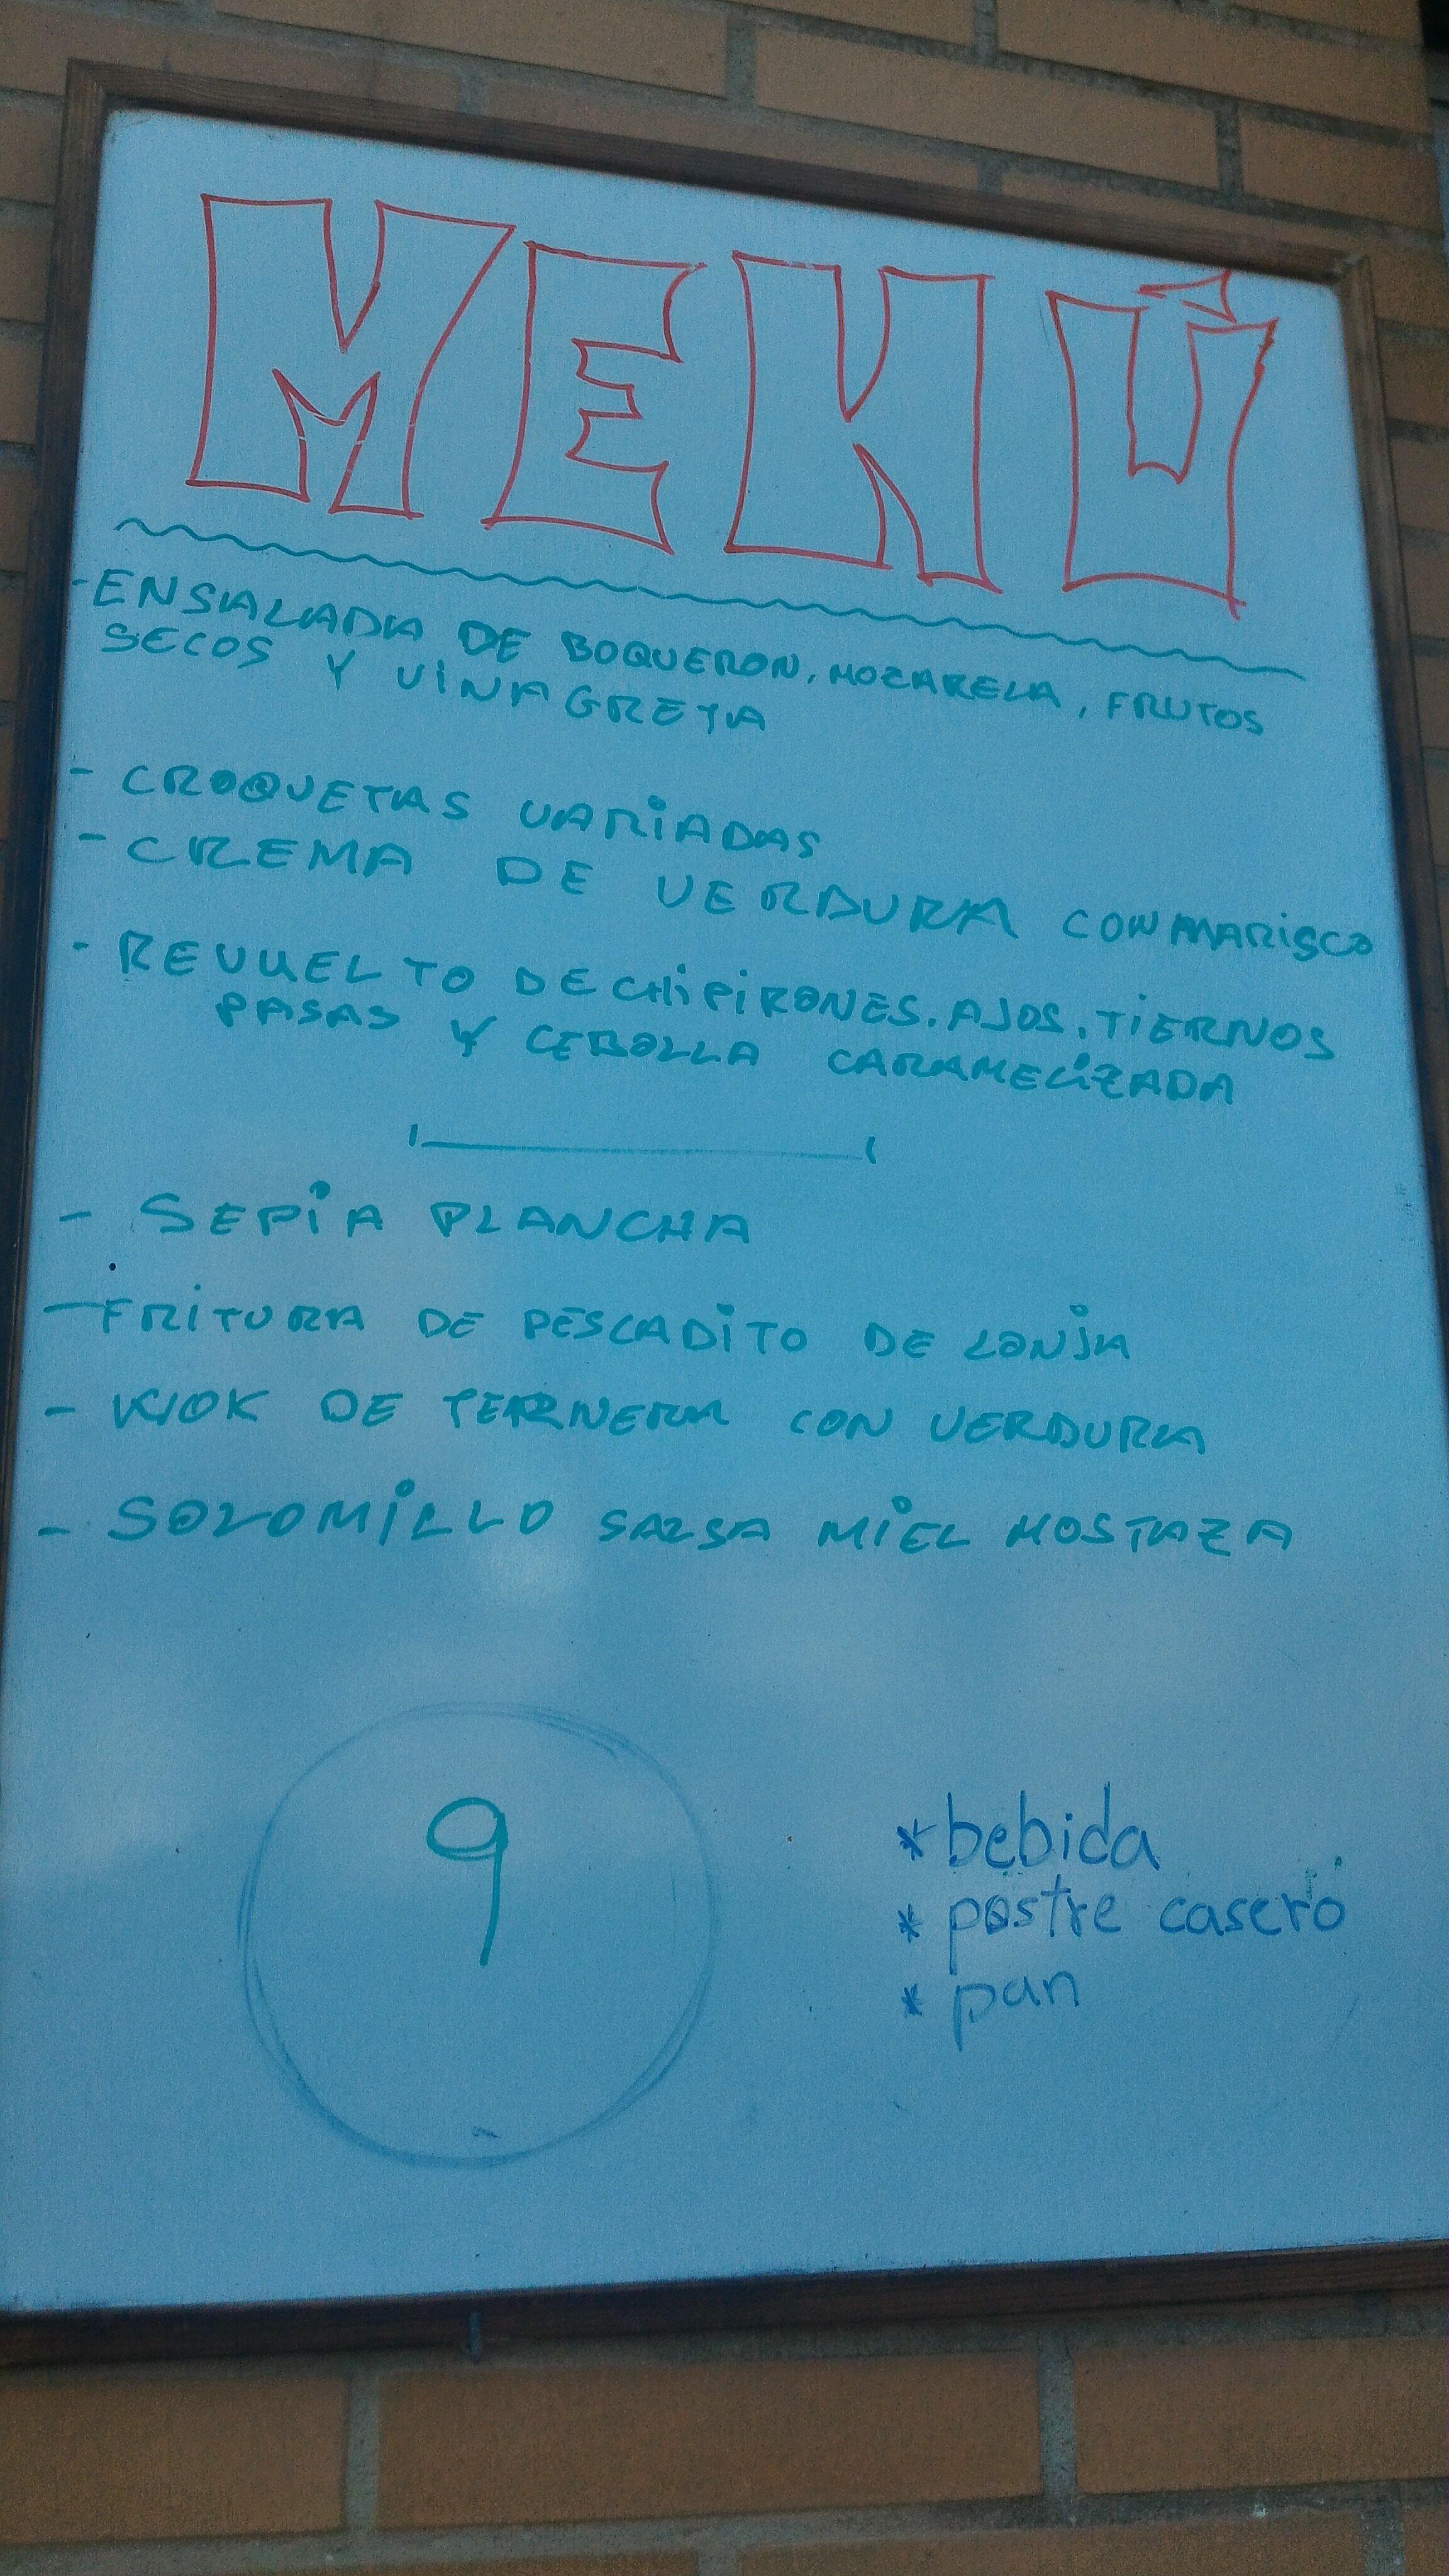 MENÚ
-ENSALADA DE BOQUERON, MOZARELA, FRUTOS
SECOS Y VINAGRETA
- CROQUETAS VARIADAS
- CREMA DE VERDURA CON MARISCO
- REVUELTO DE CHIPIRONES, AJOS, TIERNOS
PASAS Y CEBOLLA CARAMELIZADA
- SEPIA PLANCHA
- FRITURA DE PESCADITO DE LONJA
- WOK DE TERNERA CON VERDURA
- SOLOMILLO SALSA MIEL MOSTAZA
9
* bebida
* postre casero
* pan